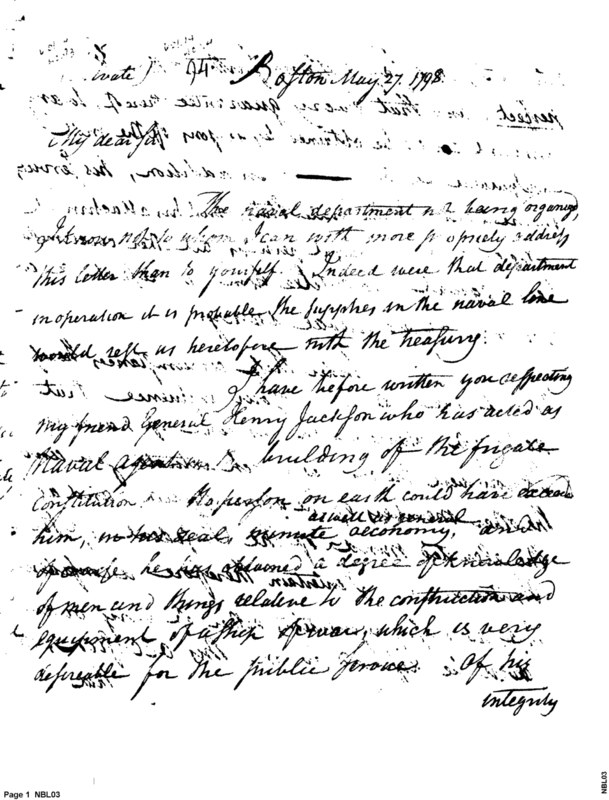 94 Boston May 27. 1798
My dear Sir
The naval department not being organized,
I know not to whom I can with more propriety address
this letter than to yourself. Indeed were that department
in operation it is probable the supplies in the naval line
would rest as heretofore with the treasury.
I have before written you respecting
my friend General Henry Jackson who has acted as
Naval agent building of the frigate
Constitution. No person on earth could have
as well as general
him, in his zeal, minute œconomy,
he has obtained a degree of knowledge
of men and things relative to the construction and
equipment of a ship of war, which is very
desireable for the public service. Of his
integrity
Page 1 NBL03
NBL03